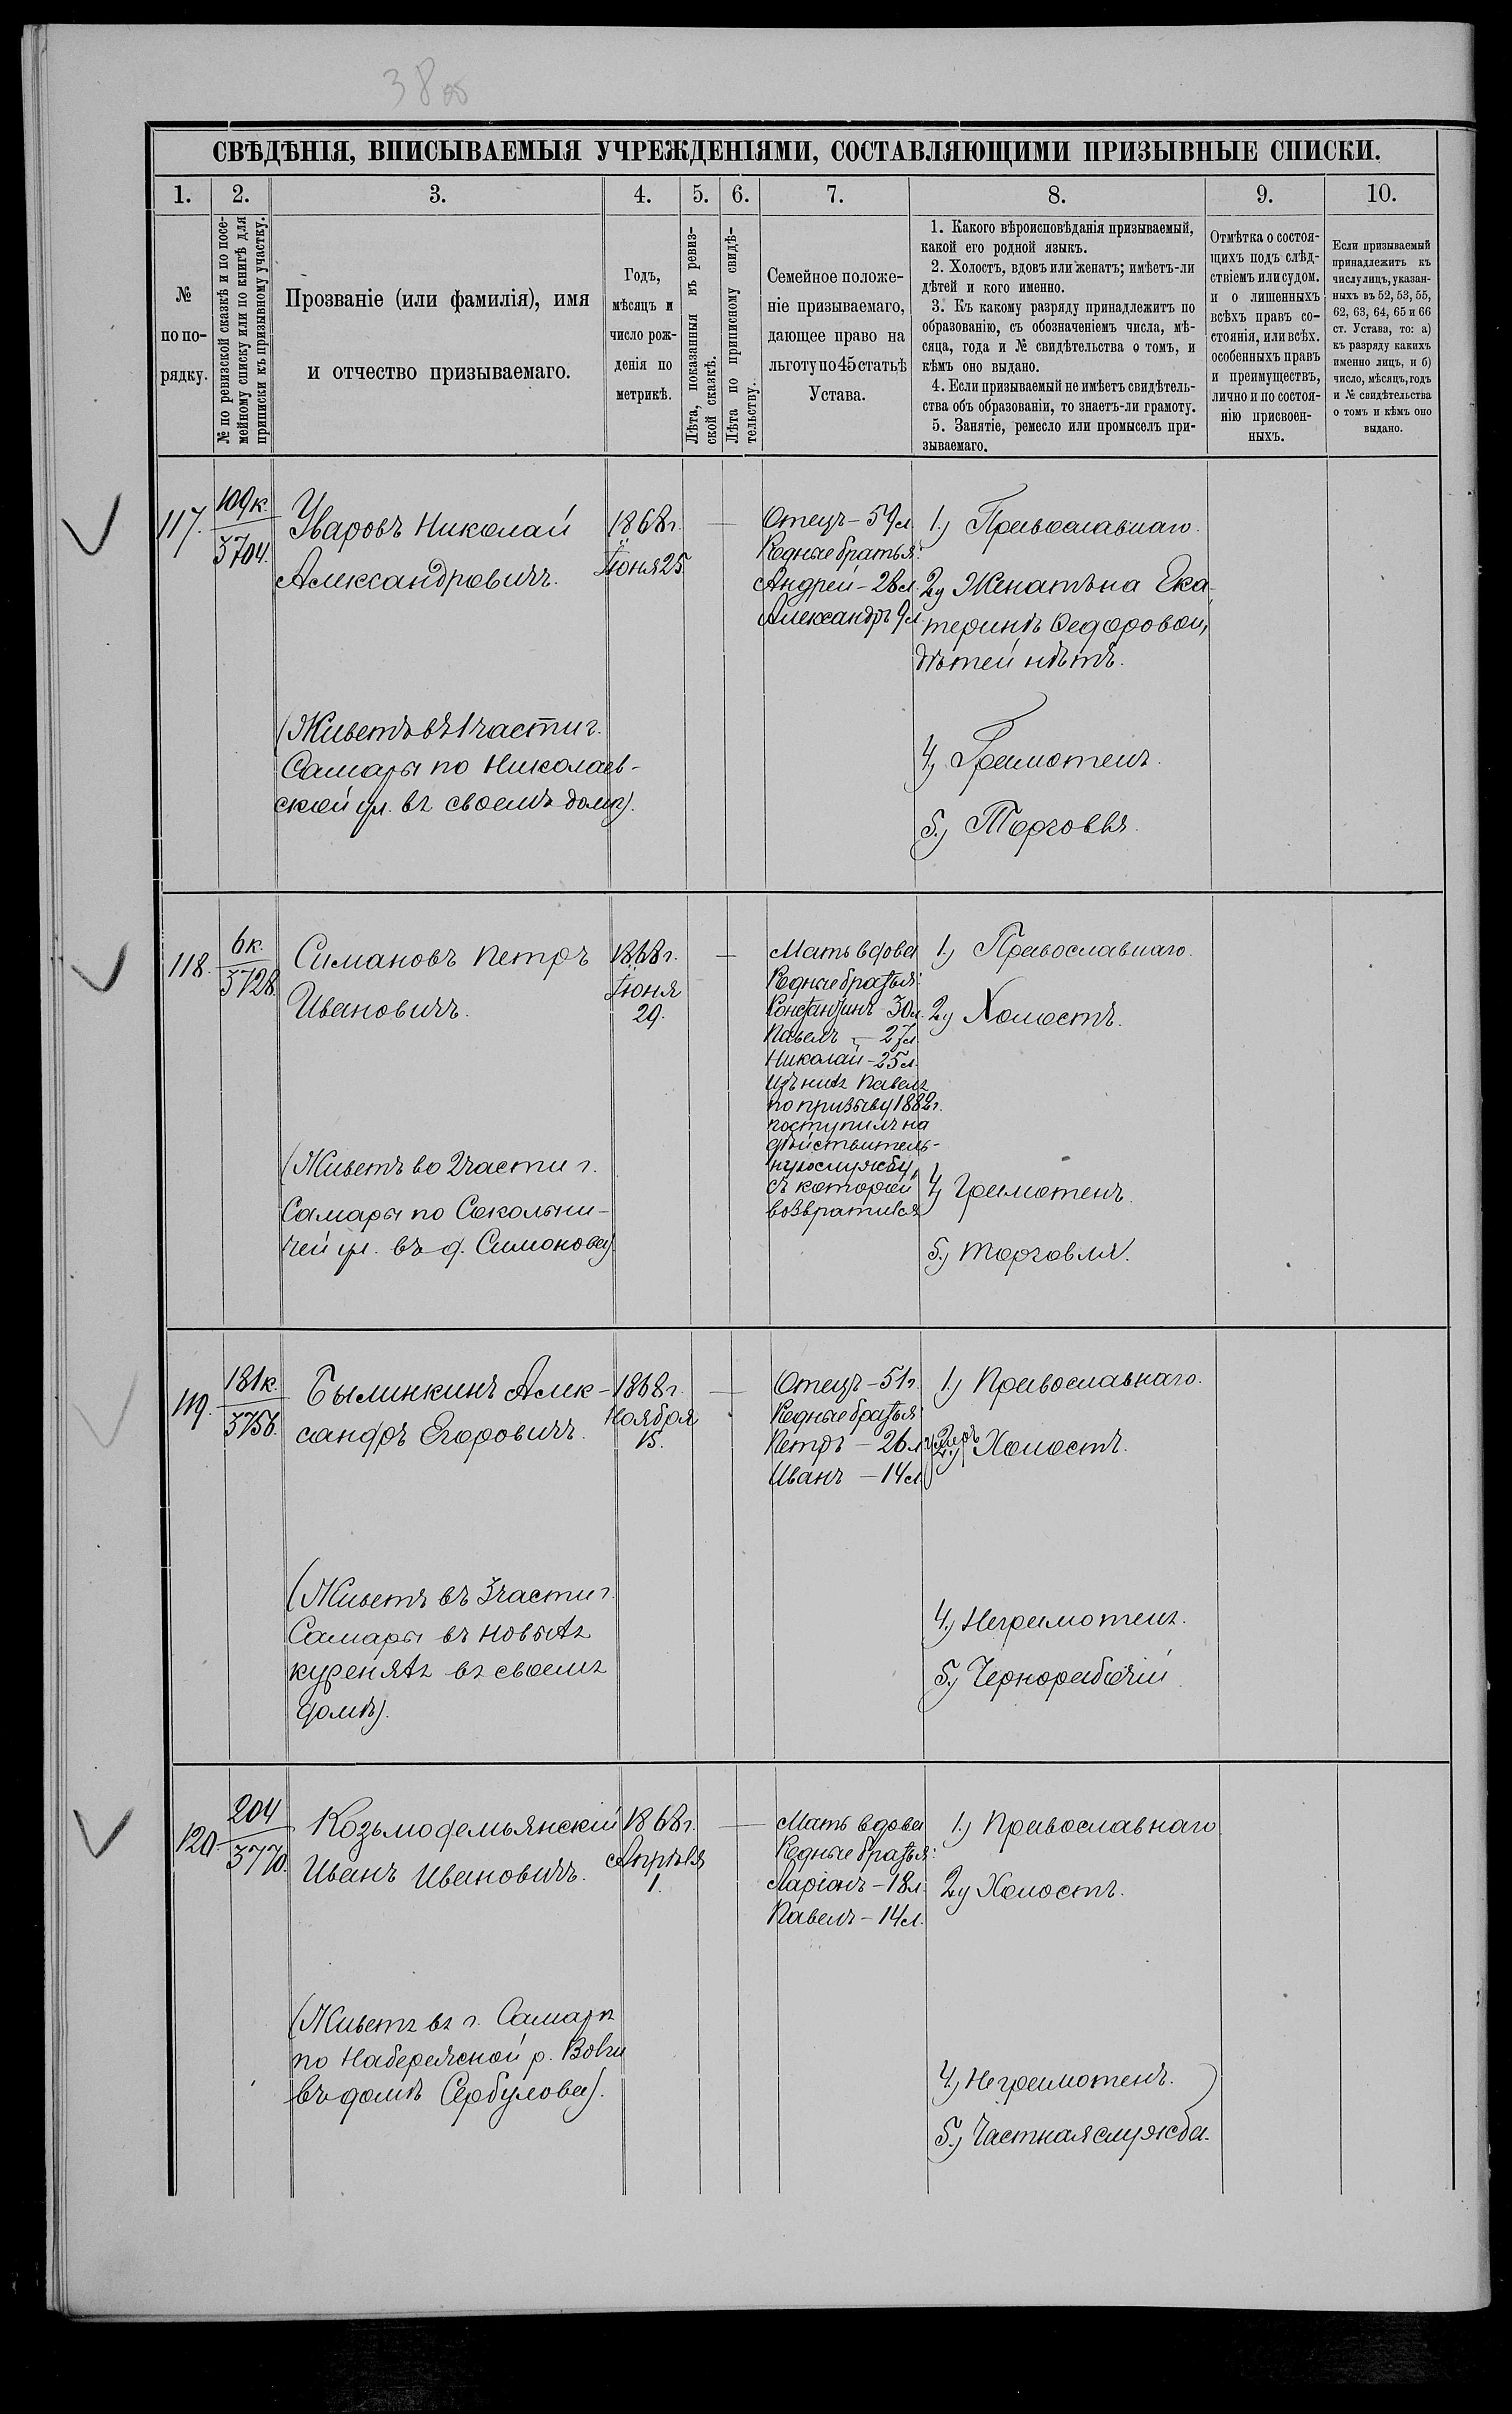 38об
СВѢДѢНІЯ, ВПИСЫВАЕМЫЯ УЧРЕЖДЕНІЯМИ, СОСТАВЛЯЮЩИМИ ПРИЗЫВНЫЕ СПИСКИ.
1. 2. 3. 4. 5. 6. 7. 8. 9. 10.
№
по по-
рядку.
№ по ревизской сказкѣ и по посе-
мейному списку или по книгѣ для
приписки къ призывному участку.
Прозваніе (или фамилія), имя
и отчество призываемаго.
Годъ,
мѣсяцъ и
число рож-
денія по
метрикѣ.
Лѣта, показанныя въ ревиз-
ской сказкѣ.
Лѣта по приписному свидѣ-
тельству.
Семейное положе-
ніе призываемаго,
дающее право на
льготу по 45 статьѣ
Устава.
1. Какого вѣроисповѣданія призываемый,
какой его родной языкъ.
2. Холостъ, вдовъ или женатъ; имѣетъ-ли
дѣтей и кого именно.
3. Къ какому разряду принадлежитъ по
образованію, съ обозначеніемъ числа, мѣ-
сяца, года и № свидѣтельства о томъ, и
кѣмъ оно выдано.
4. Если призываемый не имѣетъ свидѣтель-
ства объ образованіи, то знаетъ-ли грамоту.
5. Занятіе, ремесло или промыселъ при-
зываемаго.
Отмѣтка о состоя-
щихъ подъ слѣд-
ствіемъ или судом.
и о лишенныхъ
всѣхъ правъ со-
стоянія, или всѣх.
особенныхъ правъ
и преимуществъ,
лично и по состоя-
нію присвоен-
ныхъ.
Если призываемый
принадлежитъ къ
числу лицъ, указан-
ныхъ въ 52, 53, 55,
62, 63, 64, 65 и 66
ст. Устава, то: а)
къ разряду какихъ
именно лицъ, и б)
число, мѣсяцъ, годъ
и № свидѣтельства
о томъ и кѣмъ оно
выдано.
117.
109к.
3704.
Уваровъ Николай
Александровичъ.
(Живетъ въ 1 части г.
Самары по Николаев-
ской ул. въ своемъ домѣ).
1868г.
Іюня 25.
—
Отецъ - 59л.
Родные братья:
Андрей - 28л.
Александръ 9л.
1.) Православнаго.
2) Женатъ на Ека-
теринѣ Федоровой,
дѣтей нѣтъ.
4.) Грамотенъ.
5.) Торговля.
118.
6к.
3728.
Симановъ Петръ
Ивановичъ.
(Живетъ во 2 части г.
Самары по Сокольни-
чей ул. въ д. Симонова)
1868г.
Іюня
29.
—
Мать вдова
Родные братья:
Константинъ 30л.
Павелъ - 27л.
Николай - 25л.
Изъ нихъ Павелъ
по призыву 1882г.
поступилъ на
дѣйствитель-
ную службу,
съ которой
возвратился
1.) Православнаго.
2) Холостъ.
4) Грамотенъ.
5.) Торговля.
119.
181к.
3756.
Былинкинъ Алек-
сандръ Егоровичъ.
(Живетъ въ 3 части г.
Самары въ новыхъ
куреняхъ въ своемъ
домѣ).
1868г.
Ноября
15.
—
Отецъ - 51г.
Родные братья:
Петръ - 26л. умеръ
Иванъ - 14л.
1.) Православнаго.
2.) Холостъ.
4.) Неграмотенъ.
5.) Чернорабочій
120.
204
3770.
Козьмодемьянскій
Иванъ Ивановичъ.
(Живетъ въ г. Самарѣ
по Набережной р. Волги
въ домѣ Сербулова).
1868г.
Апрѣля
1.
—
Мать вдова
Родные братья:
Ларіонъ - 18л.
Павелъ - 14л.
1.) Православнаго
2) Холостъ.
4.) Неграмотенъ.
5.) Частная служба.